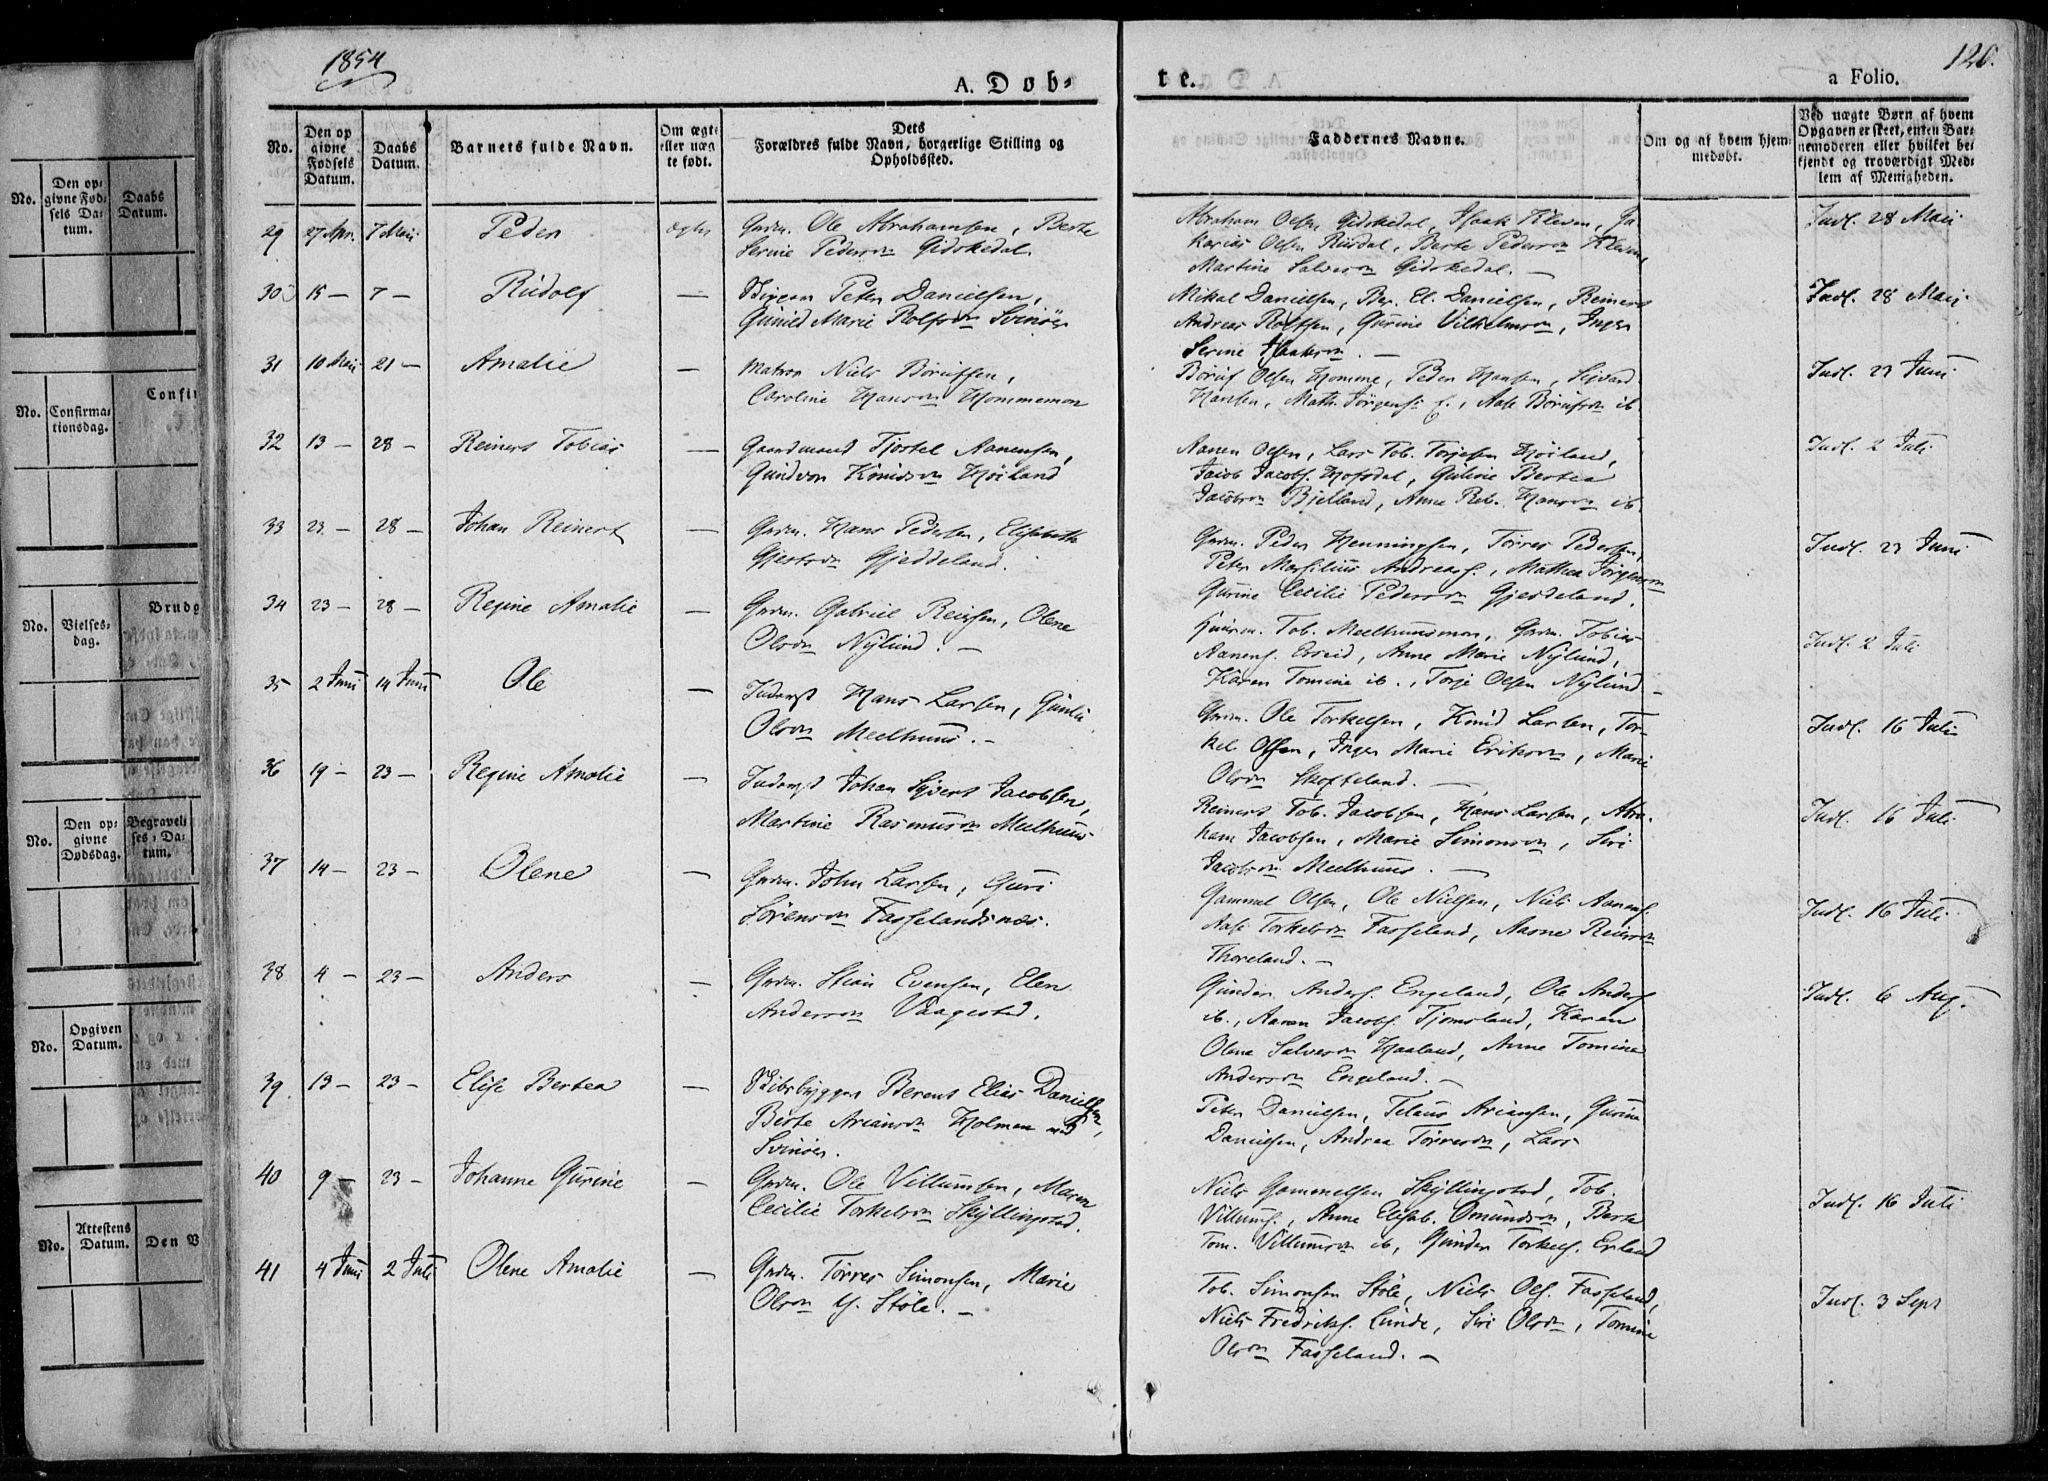 1854
120.
A. Døb-
te.
a Folio.
No.
Den op
givne
Fødsels
Datum.
Daabs
Datum.
Barnets fulde Navn.
Om ægte
eller uæg
te født.
Dets
Forældres fulde Navn, borgerlige Stilling og
Opholdssted.
Faddernes Navne.
Om og af hvem hjem-
medøbt.
Ved uægte Børn af hvem
Opgaven er skeet, enten Bar-
nemoderen eller hvilket be-
kjendt og troværdigt Med-
lem af Menigheden.
29 27 Apr. 7 Mai Peder ægte Grdm. Ole Abrahamsen, Berte
Serine Pedersn Gidskedal.
Abraham Olsen Gidskedal, Isaak Kleven, Za
karias Olsen Risdal, Berte Pedersn Kleven
Martine Salvesn Gidskedal. —
Indl. 28 Mai
30 15 — 7 — Rudolf — Peter Danielsen,
Gunild Marie Rolfsn Svinöer
Mikal Danielsen, Ber. El. Danielsen, Reinert
Andreas Rolfsen, Gurine Vilhelmsn, Inger
Serine Isaksn. —
Indl. 28 Mai
31 10 Mai 21 — Amalie — Matros Niels Börufsen,
Caroline Hansn Hommemon
Böruf Olsen Homme, Peder Hansen, Sivard
Hansen, Math. Jörgens. f., Aase Börufsn ib
Indl. 23 Juni
32 13 — 28 — Reinert Tobias — Gaardmand Tjostel Aanensen,
Gundvor Knudsn Höiland
Aanen Olsen, Lars Tob. Torjesen Höiland,
Jacob Jacobs. Hofsdal, Guline Bertea
Jacobsn Bjelland, Anne Reb. Hansn ib.
Indl. 2 Juli
33 23 — 28 — Johan Reinert — Grdm. Hans Pedersen, Elisabeth
Gjertsn Gjeddeland.
Grdm. Peder Henningsen, Törres Pedersen,
Peter Marsilius Andreas., Mathea Jörgensn
Gurine Cecilie Pedersn Gjeddeland.
Indl. 23 Juni
34 23 — 28 — Regine Amalie — Grdm. Gabriel Reiersen, Olene
Olsdn Nylund. —
Tob. Meelhuusmon, Grdm. Tobias
Aanens. Erseid, Anne Marie Nylund,
Karen Tomine ib., Torje Olsen Nylund —
Indl. 2 Juli
35 2 Juni 14 Juni Ole — Inderst Hans Larsen, Gunild
Olsdn Meelhuus. —
Grdm. Ole Torkelsen, Knud Larsen, Tor-
kel Olsen, Inger Marie Eriksn, Marie
Olsdn Skofteland. —
Indl. 16 Juli
36 19 — 23 — Regine Amalie — Inderst Johan Syvert Jacobsen,
Martine Rasmusn Meelhuus
Reinert Tob. Jacobsen, Hans Larsen, Abra-
ham Jacobsen, Marie Simonsn, Siri
Jacobsn Meelhuus. —
Indl. 16 Juli
37 14 — 23 — Olene — Grdm. John Larsen, Guri
Sörensn Fasselandsnæs.
Gammel Olsen, Ole Nielsen, Niels Aanens.
Aase Torkelsn Fasseland, Aasne Reiersn
Thoreland. —
Indl. 16 Juli
38 4 — 23 — Anders — Grdm. Stian Evensen, Elen
Andersn Vaagested.
Gunder Anders. Engeland, Ole Anders.
ib., Aanen Jacobs. Tjomsland, Karen
Olena Salvesn Haaland, Anne Tomine
Andersn Engeland. —
Indl. 6 Aug.
39 13 — 23 — Elise Bertea — Skibsbygger Berent Elias Danielsen,
Berte Ariansn Holmen ved
Svinöer.
Peter Danielsen, Telaus Ariansen, Gurine
Danielsen, Andrea Törresn, Lars
40 9 — 23 — Johanne Gurine — Grdm. Ole Villumsen, Maren
Cecilie Torkelsn Skyllingstad.
Niels Gammelsen Skyllingstad, Tob.
Villums., Anne Elisab. Omundsn, Berte
Tom. Villumsn ib, Gunder Torkels. Erland
Indl. 16 Juli
41 4 Juni 2 Juli Olene Amalie — Grdm. Törres Simonsen, Marie
Olsdn Y. Stöle. —
Tob. Simonsen Stöle, Niels Ols. Fasseland,
Niels Fredriks. Lunde, Siri Olsdn, Tomine
Olsdn Fasseland. —
Indl. 3 Sept
No.
Den op-
givne Fød-
sels Da-
tum.
Daabs
Datum.
No.
Confirma-
tionsdag.
Confir
No.
Vielses-
dag.
Brudg
No.
Den op-
givne
Dødsdag.
Begravel-
ses-Da-
tum.
No.
Opgiven
Datum.
No.
Attestens
Datum.
Den V